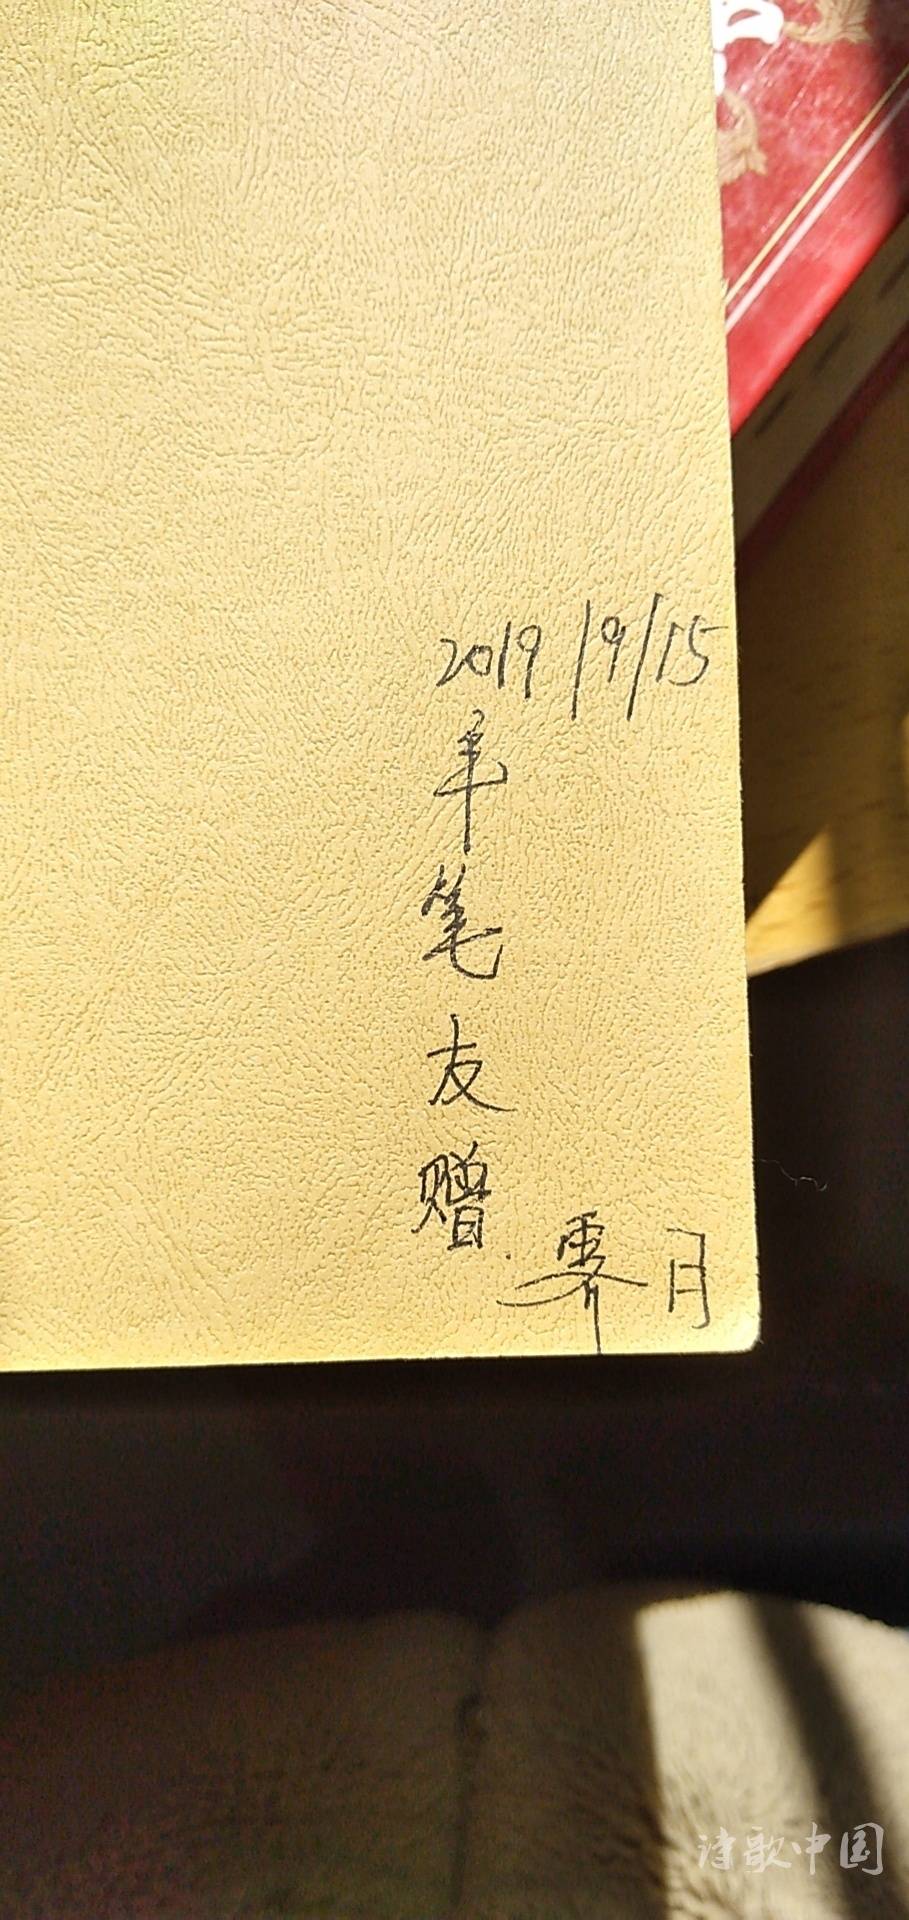 2019/9/15
羊笔友赠.
霁月
诗歌中国